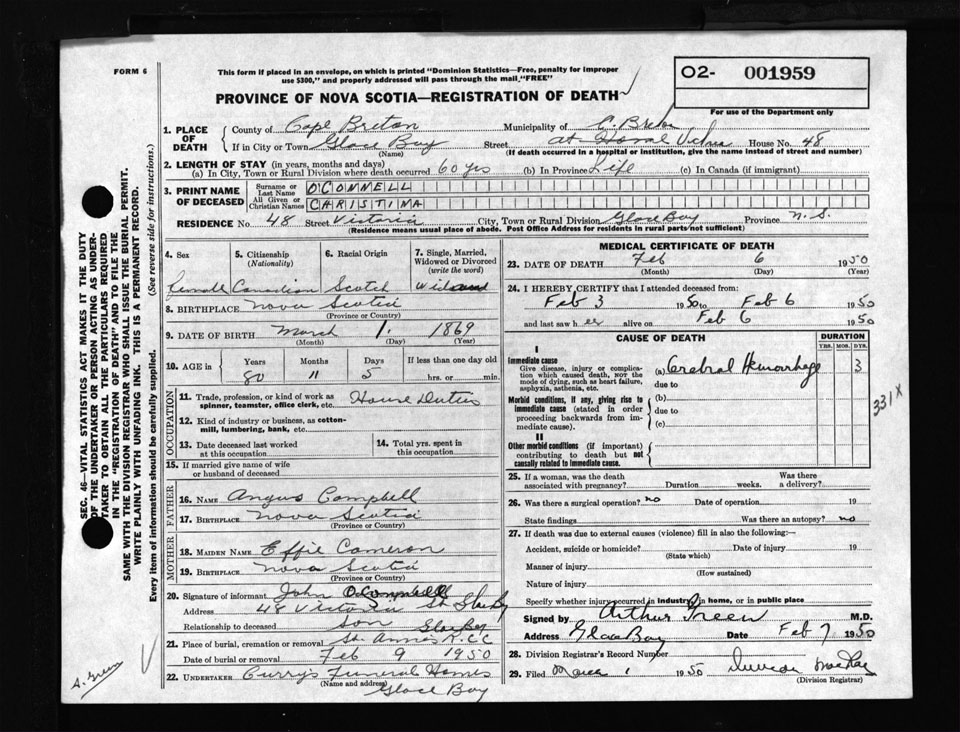 FORM 6
This form if placed in an envelope, on which is printed "Dominion Statistics—Free, penalty for improper
use $300," and properly addressed will pass through the mail "FREE"
O2- 001959
For use of the Department only
PROVINCE OF NOVA SCOTIA—REGISTRATION OF DEATH
SEC. 46—VITAL STATISTICS ACT MAKES IT THE DUTY
OF THE UNDERTAKER OR PERSON ACTING AS UNDER-
TAKER TO OBTAIN ALL THE PARTICULARS REQUIRED
IN THE "REGISTRATION OF DEATH" AND TO FILE THE
SAME WITH THE DIVISION REGISTRAR WHO SHALL ISSUE THE BURIAL PERMIT.
WRITE PLAINLY WITH UNFADING INK. THIS IS A PERMANENT RECORD.
Every item of information should be carefully supplied. (See reverse side for instructions.)
1. PLACE OF DEATH
County of Cape Breton Municipality of C. Breton
If in City or Town Glace Bay Street at Home House No. 48
(Name) (If death occurred in a hospital or institution, give the name instead of street and number)
2. LENGTH OF STAY (in years, months and days)
(a) In City, Town or Rural Division where death occurred 60 yrs (b) In Province Life (c) In Canada (if immigrant)
3. PRINT NAME OF DECEASED
Surname or Last Name O'CONNELL
All Given or Christian Names CHRISTINA
RESIDENCE No. 48 Street Victoria City, Town or Rural Division Glace Bay Province N.S.
(Residence means usual place of abode. Post Office Address for residents in rural parts not sufficient)
4. Sex 5. Citizenship (Nationality) 6. Racial Origin 7. Single, Married, Widowed or Divorced (write the word)
female Canadian Scotch Widowed
8. BIRTHPLACE Nova Scotia
(Province or County)
9. DATE OF BIRTH March 1. 1869
(Month) (Day) (Year)
10. AGE in Years Months Days If less than one day old
80 11 5 hrs. or min.
OCCUPATION
11. Trade, profession, or kind of work as spinner, teamster, office clerk, etc. House Duties
12. Kind of industry or business, as cotton-mill, lumbering, bank, etc.
13. Date deceased last worked at this occupation
14. Total yrs. spent in this occupation
15. If married give name of wife or husband of deceased
FATHER
16. NAME Angus Campbell
17. BIRTHPLACE Nova Scotia
(Province or Country)
MOTHER
18. MAIDEN NAME Effie Cameron
19. BIRTHPLACE Nova Scotia
(Province or Country)
20. Signature of informant John O'Connell
Address 48 Victoria St Glace Bay
Relationship to deceased son
21. Place of burial, cremation or removal St. Anne's R.C.C Glace Bay
Date of burial or removal Feb 9 1950
22. UNDERTAKER Curry's Funeral Homes
(Name and address)
Glace Bay
MEDICAL CERTIFICATE OF DEATH
23. DATE OF DEATH Feb 6 1950
(Month) (Day) (Year)
24. I HEREBY CERTIFY that I attended deceased from:
Feb 3 1950 to Feb 6 1950
and last saw her alive on Feb 6 1950
CAUSE OF DEATH DURATION
YRS. MOS. DYS.
I
Immediate cause
Give disease, injury or complication which caused death, not the mode of dying, such as heart failure, asphyxia, asthenia, etc.
(a) Cerebral Hemorrhage 3
due to
Morbid conditions, if any, giving rise to immediate cause (stated in order proceeding backwards from immediate cause).
(b)
due to
(c)
II
Other morbid conditions (if important) contributing to death but not causally related to immediate cause.
331X
25. If a woman, was the death associated with pregnancy? Duration weeks. Was there a delivery?
26. Was there a surgical operation? no Date of operation 19
State findings Was there an autopsy? no
27. If death was due to external causes (violence) fill in also the following:—
Accident, suicide or homicide? Date of injury 19
(State which)
Manner of injury
(How sustained)
Nature of injury
Specify whether injury occurred in industry, in home, or in public place
Signed by Arthur Green M.D.
Address Glace Bay Date Feb 7 1950
28. Division Registrar's Record Number
29. Filed March 1 1950 Duncan MacRae
(Division Registrar)
A. Green